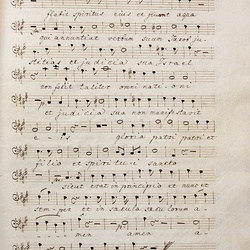 flabit spiritus eius et fluent aqua
qui annuntiat verbum suum Jacob ju
stitias et judicia sua Israel
non fecit taliter omni nati oni
et judicia sua non manifestavit
gloria patri patri et
filio et spiritu i sancto
sicut erat in principio et nunc et
semper et in saecula saeculorum a
men amen a